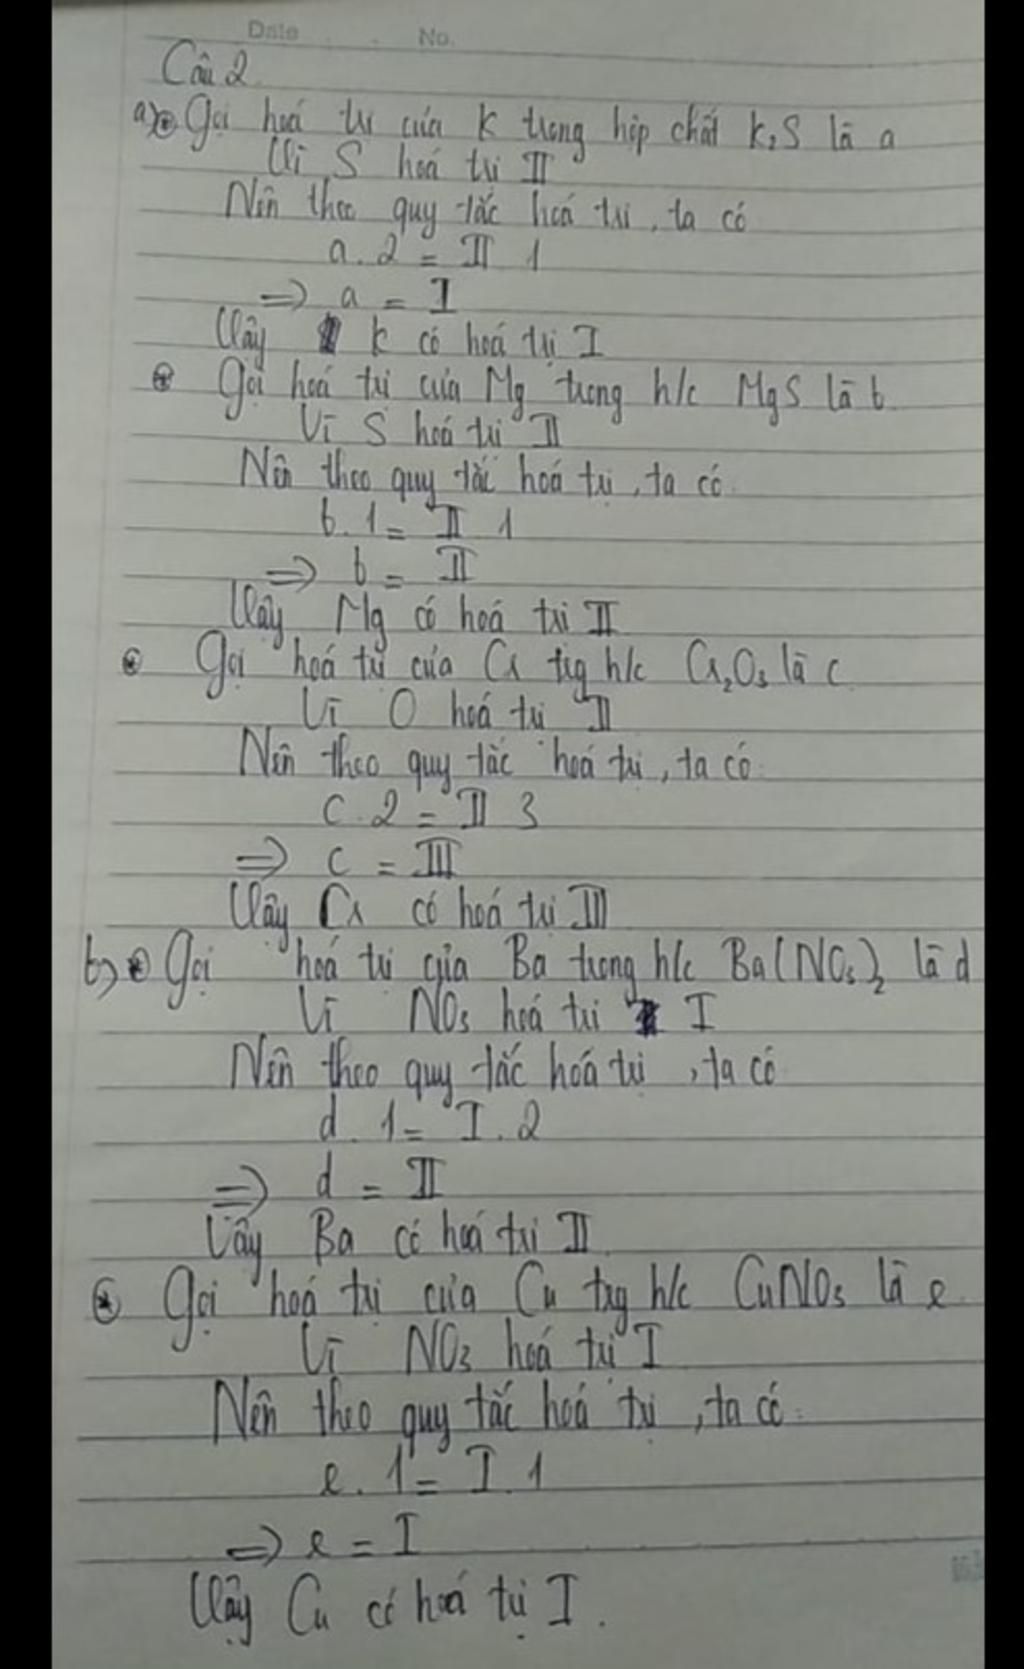 Date No.
Câu 2
a) Gọi hoá trị của K trong hợp chất K₂S là a
Vì S hoá trị II
Nên theo quy tắc hoá trị, ta có
a.2 = II 1
=> a = I
Vậy K có hoá trị I
Gọi hoá trị của Mg trong h/c MgS là b
Vì S hoá trị II
Nên theo quy tắc hoá trị, ta có
b.1 = II 1
=> b = II
Vậy Mg có hoá trị II
Gọi hoá trị của Cr trg h/c Cr₂O₃ là c
Vì O hoá trị II
Nên theo quy tắc hoá trị, ta có
c.2 = II 3
=> c = III
Vậy Cr có hoá trị III
b) Gọi hoá trị của Ba trong h/c Ba(NO₃)₂ là d
Vì NO₃ hoá trị I
Nên theo quy tắc hoá trị, ta có
d.1 = I.2
=> d = II
Vậy Ba có hoá trị II
Gọi hoá trị của Cu trg h/c CuNO₃ là e
Vì NO₃ hoá trị I
Nên theo quy tắc hoá trị, ta có:
e.1 = I.1
=> e = I
Vậy Cu có hoá trị I.